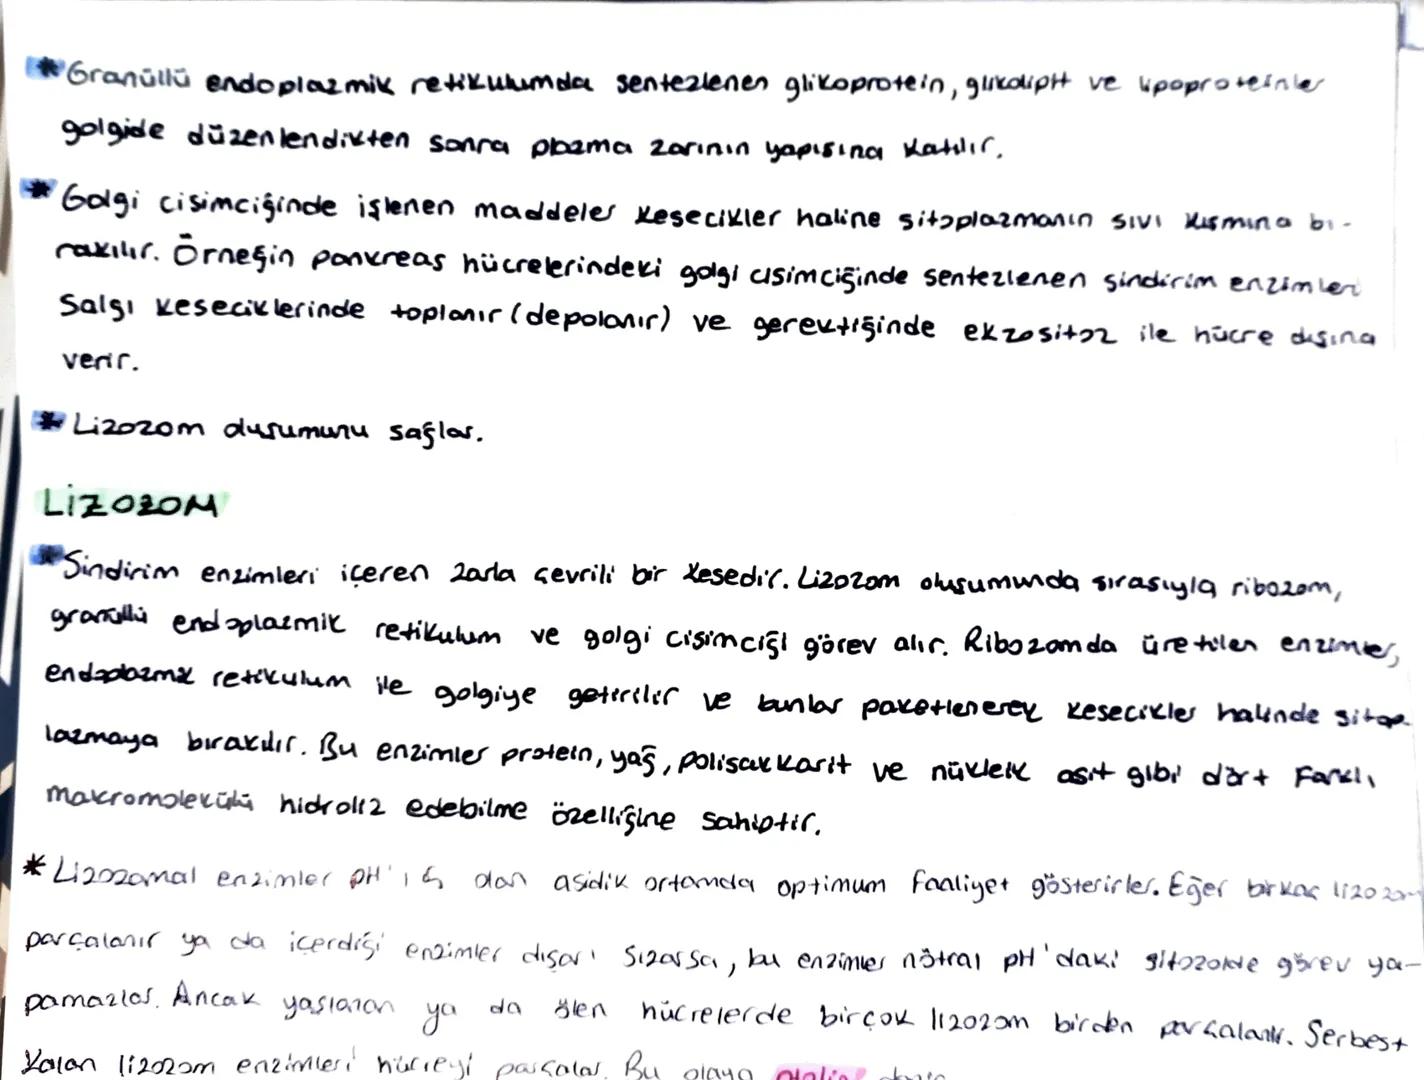 * Granüllü endoplazmik retikulumda sentezlenen glikoprotein, glikolipit ve lipoproteinler
golgide düzenlendikten sonra plazma zarının yapısına katılır.
* Golgi cisimciğinde işlenen maddeler kesecikler haline sitoplazmanın sıvı kısmına bı-
rakılır. Örneğin pankreas hücrelerindeki golgi cisimciğinde sentezlenen sindirim enzimleri
Salgı keseciklerinde toplanır (depolanır) ve gerektiğinde ekzositoz ile hücre dışına
verir.
* Lizozom duşumunu sağlar.
LİZOZOM
* Sindirim enzimleri içeren zarla çevrili bir kesedir. Lizozom oluşumunda sırasıyla ribozom,
granüllü endoplazmik retikulum ve golgi cisimciği görev alır. Ribozomda üretilen enzimler,
endoplazmik retikulum ile golgiye getirilir ve bunlar paketlenerek kesecikler halinde sitop
lazmaya bırakılır. Bu enzimler protein, yağ, polisakkarit ve nükleik asit gibi dört farklı
makromolekülü hidroliz edebilme özelliğine sahiptir.
* Lizozomal enzimler pH'ı olan asidik ortamda optimum faaliyet gösterirler. Eğer birkaç lizozom
parçalanır ya da içerdiği enzimler dışarı sızarsa, bu enzimler nötral pH'daki sitozolde görev ya-
pamazlar. Ancak yaşlanan ya da ölen hücrelerde birçok lizozom birden parçalanır. Serbest
kalan lizozom enzimleri hücreyi parçalar. Bu olaya otoliz denir.